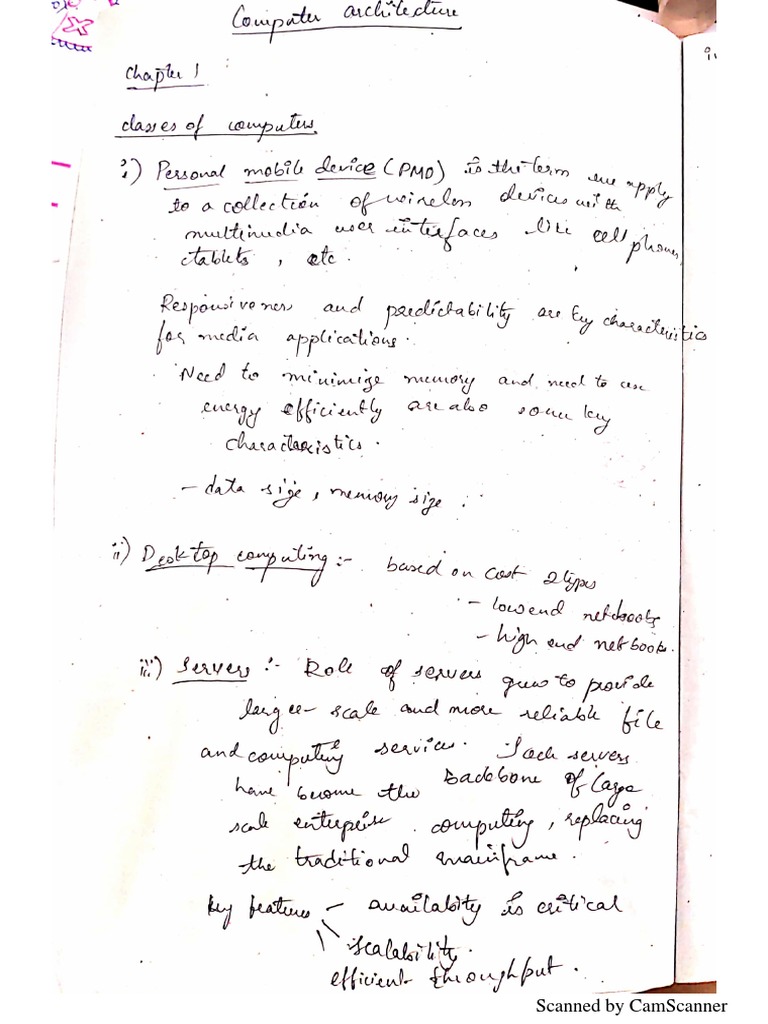 Computer architecture
Chapter 1
classes of computers
i) Personal mobile device (PMD) is the term we apply
to a collection of wireless devices with
multimedia user interfaces like cell phones,
tablets, etc.
Responsiveness and predictability are key characteristics
for media applications.
Need to minimize memory and need to use
energy efficiently are also some key
characteristics.
- data size, memory size.
ii) Desktop computing :- based on cost 2 types
- low end netbooks
- high end netbook.
iii) Servers :- Role of servers grew to provide
larger scale and more reliable file
and computing services. Such servers
have become the backbone of large
scale enterprise computing, replacing
the traditional mainframe.
key features - availability is critical
scalability.
efficient throughput.
Scanned by CamScanner